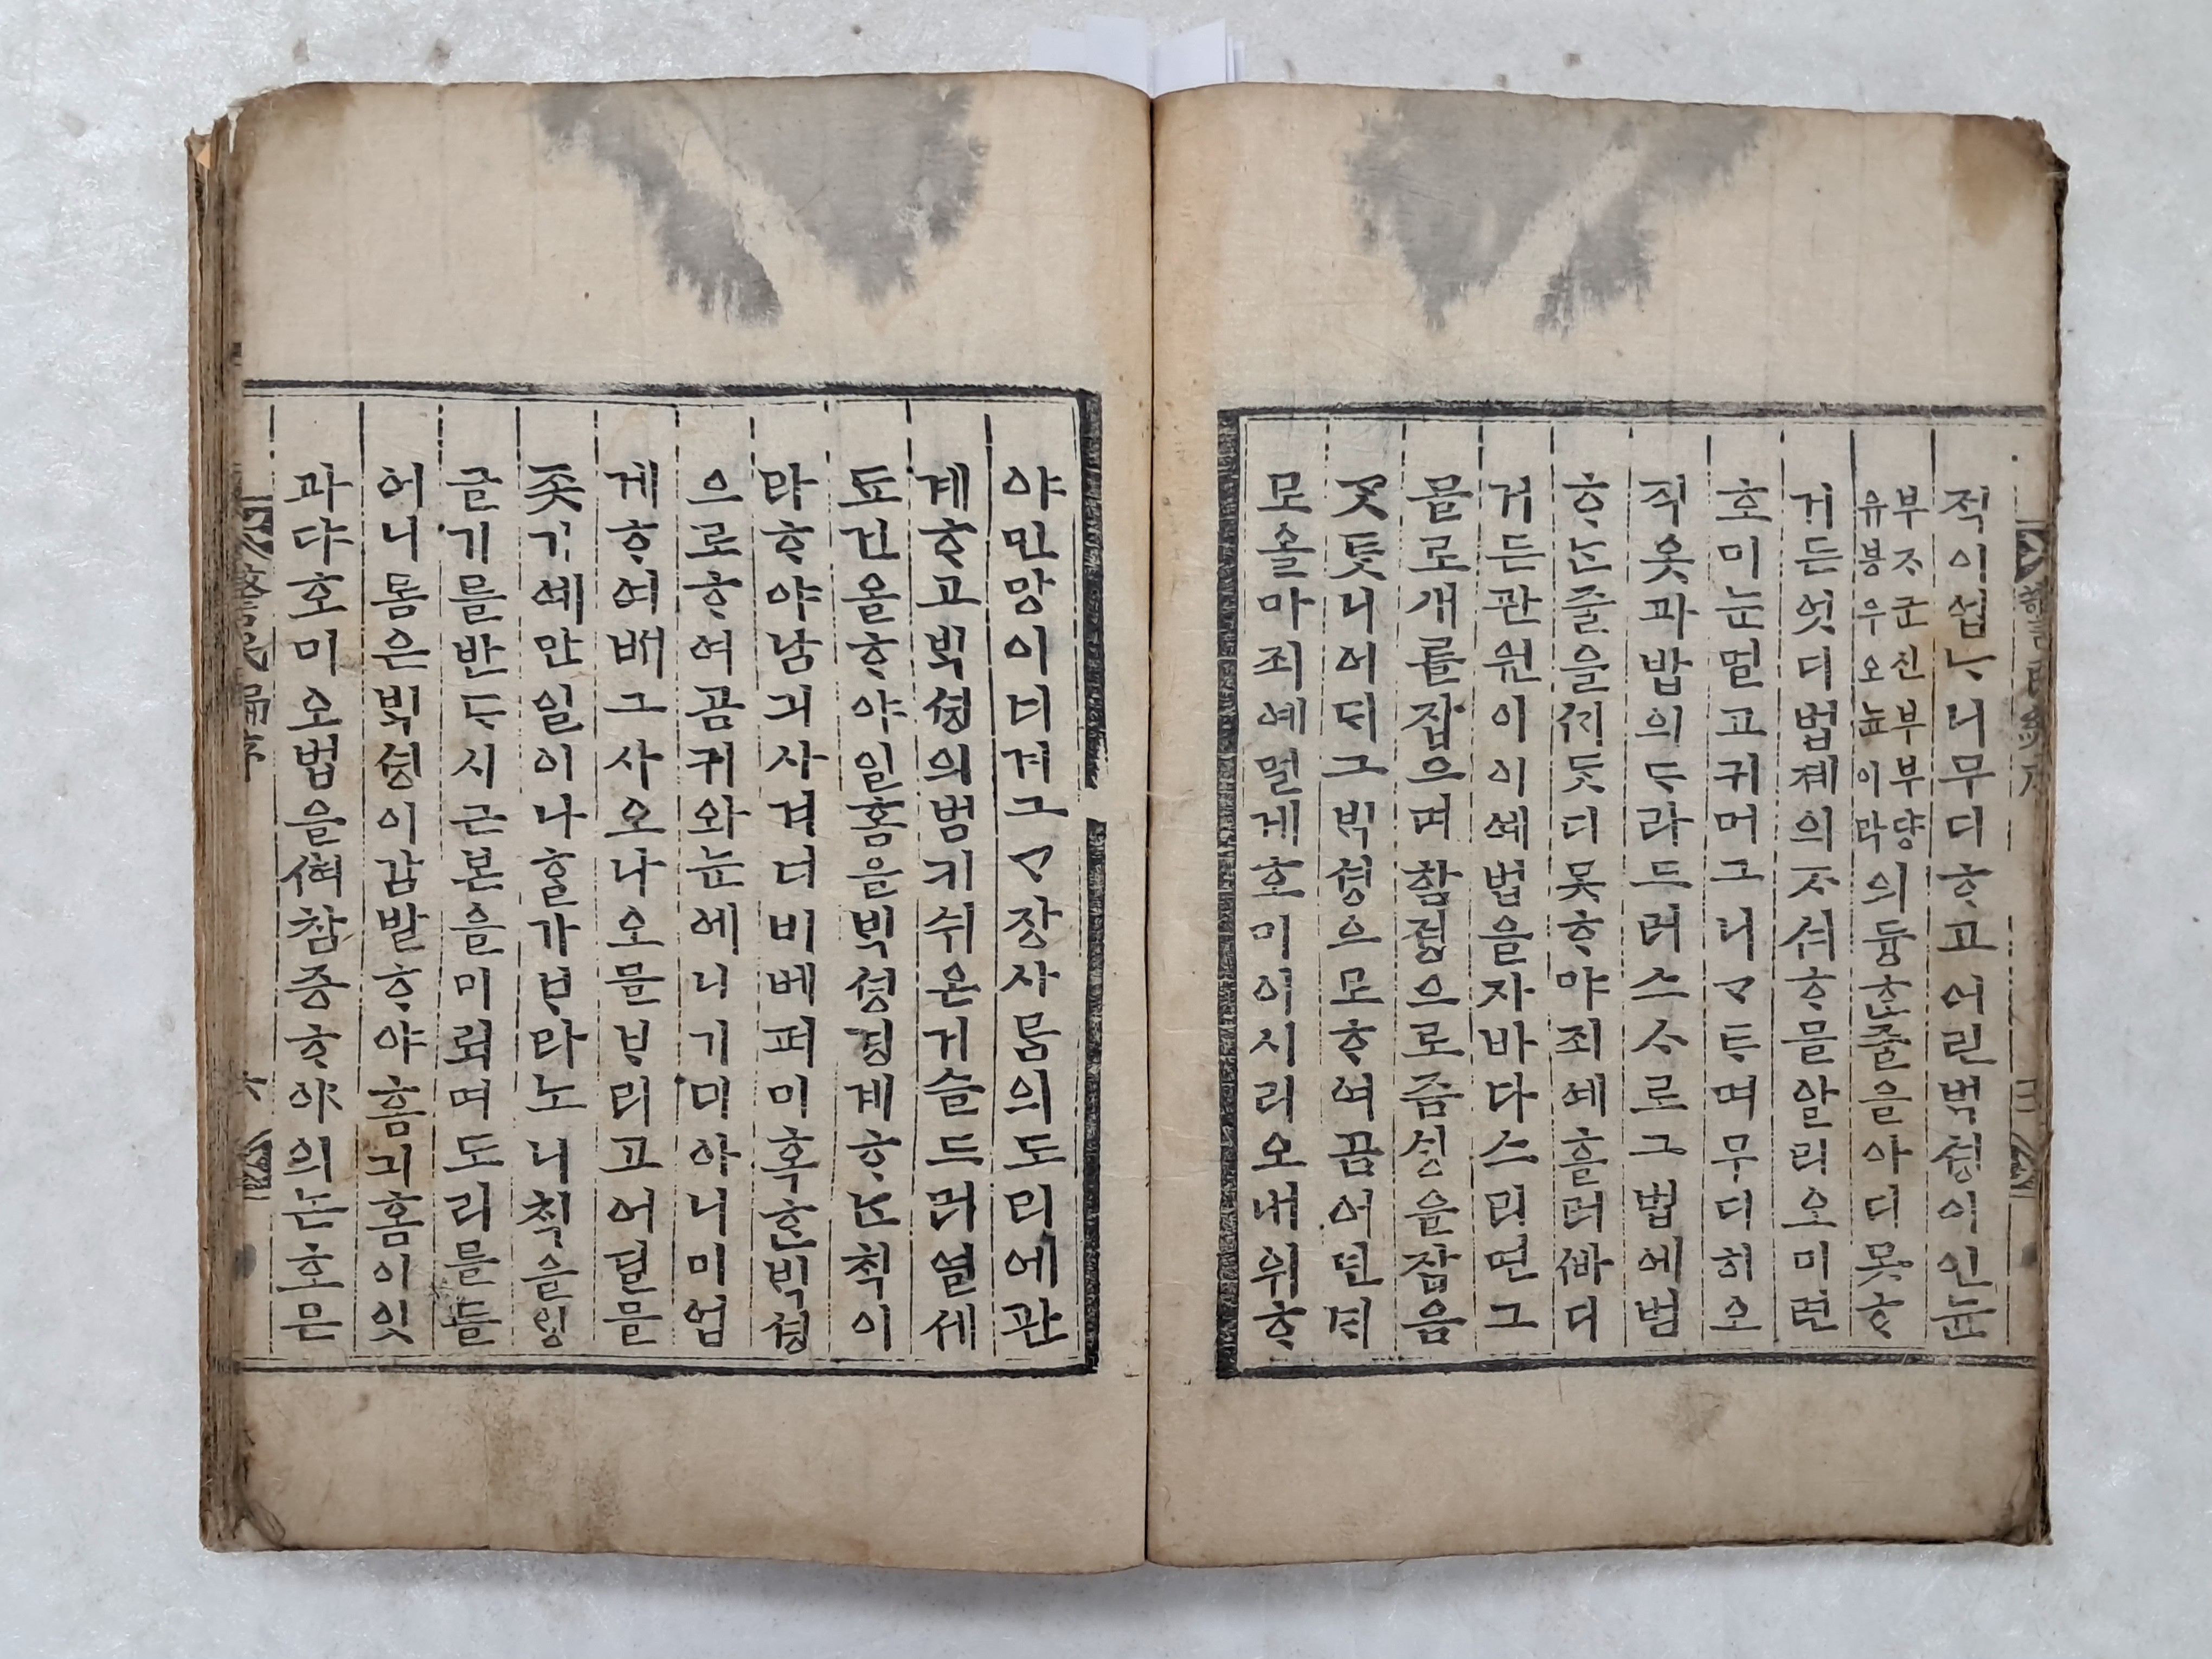 적이 업ᄂᆞ니 무디ᄒᆞ고 어린 ᄇᆡᆨ셩이 인뉸
부ᄌᆞ군친부부댱
유붕우오뉸이라
의 듕ᄒᆞᆫ 줄을 아디 못ᄒᆞ
거든 엇디 법졔의 ᄌᆞ셔ᄒᆞ믈 알리오 미련
호미 눈멀고 귀머그니 ᄀᆞᄐᆞ며 무디히 오
직 옷과 밥의 ᄃᆞ라드러 스ᄉᆞ로 그 법에 범
ᄒᆞᄂᆞᆫ 줄을 ᄭᆡᄃᆞᆺ디 못ᄒᆞ야 죄예 흘러 ᄲᅡ디
거든 관원이 이예 법을 자바 다ᄉᆞ리면 그
믈로 개를 잡으며 함졍으로 즘ᄉᆡᆼ을 잡음
ᄀᆞᆺᄐᆞ니 어ᄃᆡ 그 ᄇᆡᆨ셩으로 ᄒᆞ여곰 어딘 ᄃᆡ
로 올마 죄예 멀게 호미 이시리오 내 위ᄒᆞ
야 민망이 너겨 그 ᄀᆞ장 사ᄅᆞᆷ의 도리에 관
계ᄒᆞ고 ᄇᆡᆨ셩의 범키 쉬온 거슬 드러 열세
됴건을 ᄒᆞ야 일홈을 ᄇᆡᆨ셩 경계ᄒᆞᄂᆞᆫ ᄎᆡᆨ이
라 ᄒᆞ야 남긔 사겨 너비 베퍼 미혹ᄒᆞᆫ ᄇᆡᆨ셩
으로 ᄒᆞ여곰 귀와 눈에 니기미 아니미 업
게 ᄒᆞ여 ᄡᅥ 그 사오나오믈 ᄇᆞ리고 어딜믈
좃기예 만일이나 ᄒᆞᆯ가 ᄇᆞ라노니 ᄎᆡᆨ을 ᄆᆡᆼ
글기를 반ᄃᆞ시 근본을 미뢰며 도리를 들
어 니ᄅᆞᆷ은 ᄇᆡᆨ셩이 감발ᄒᆞ야 흥긔홈이 잇
과댜 호미오 법을 섯 참증ᄒᆞ야 의논호믄